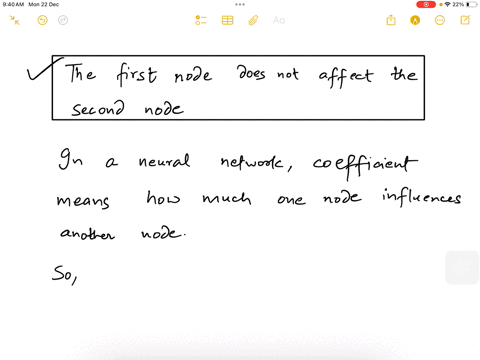 9:40 AM Mon 22 Dec
22%
Aa
The first node does not affect the
second node
In a neural network, coefficient
means how much one node influences
another node.
So,